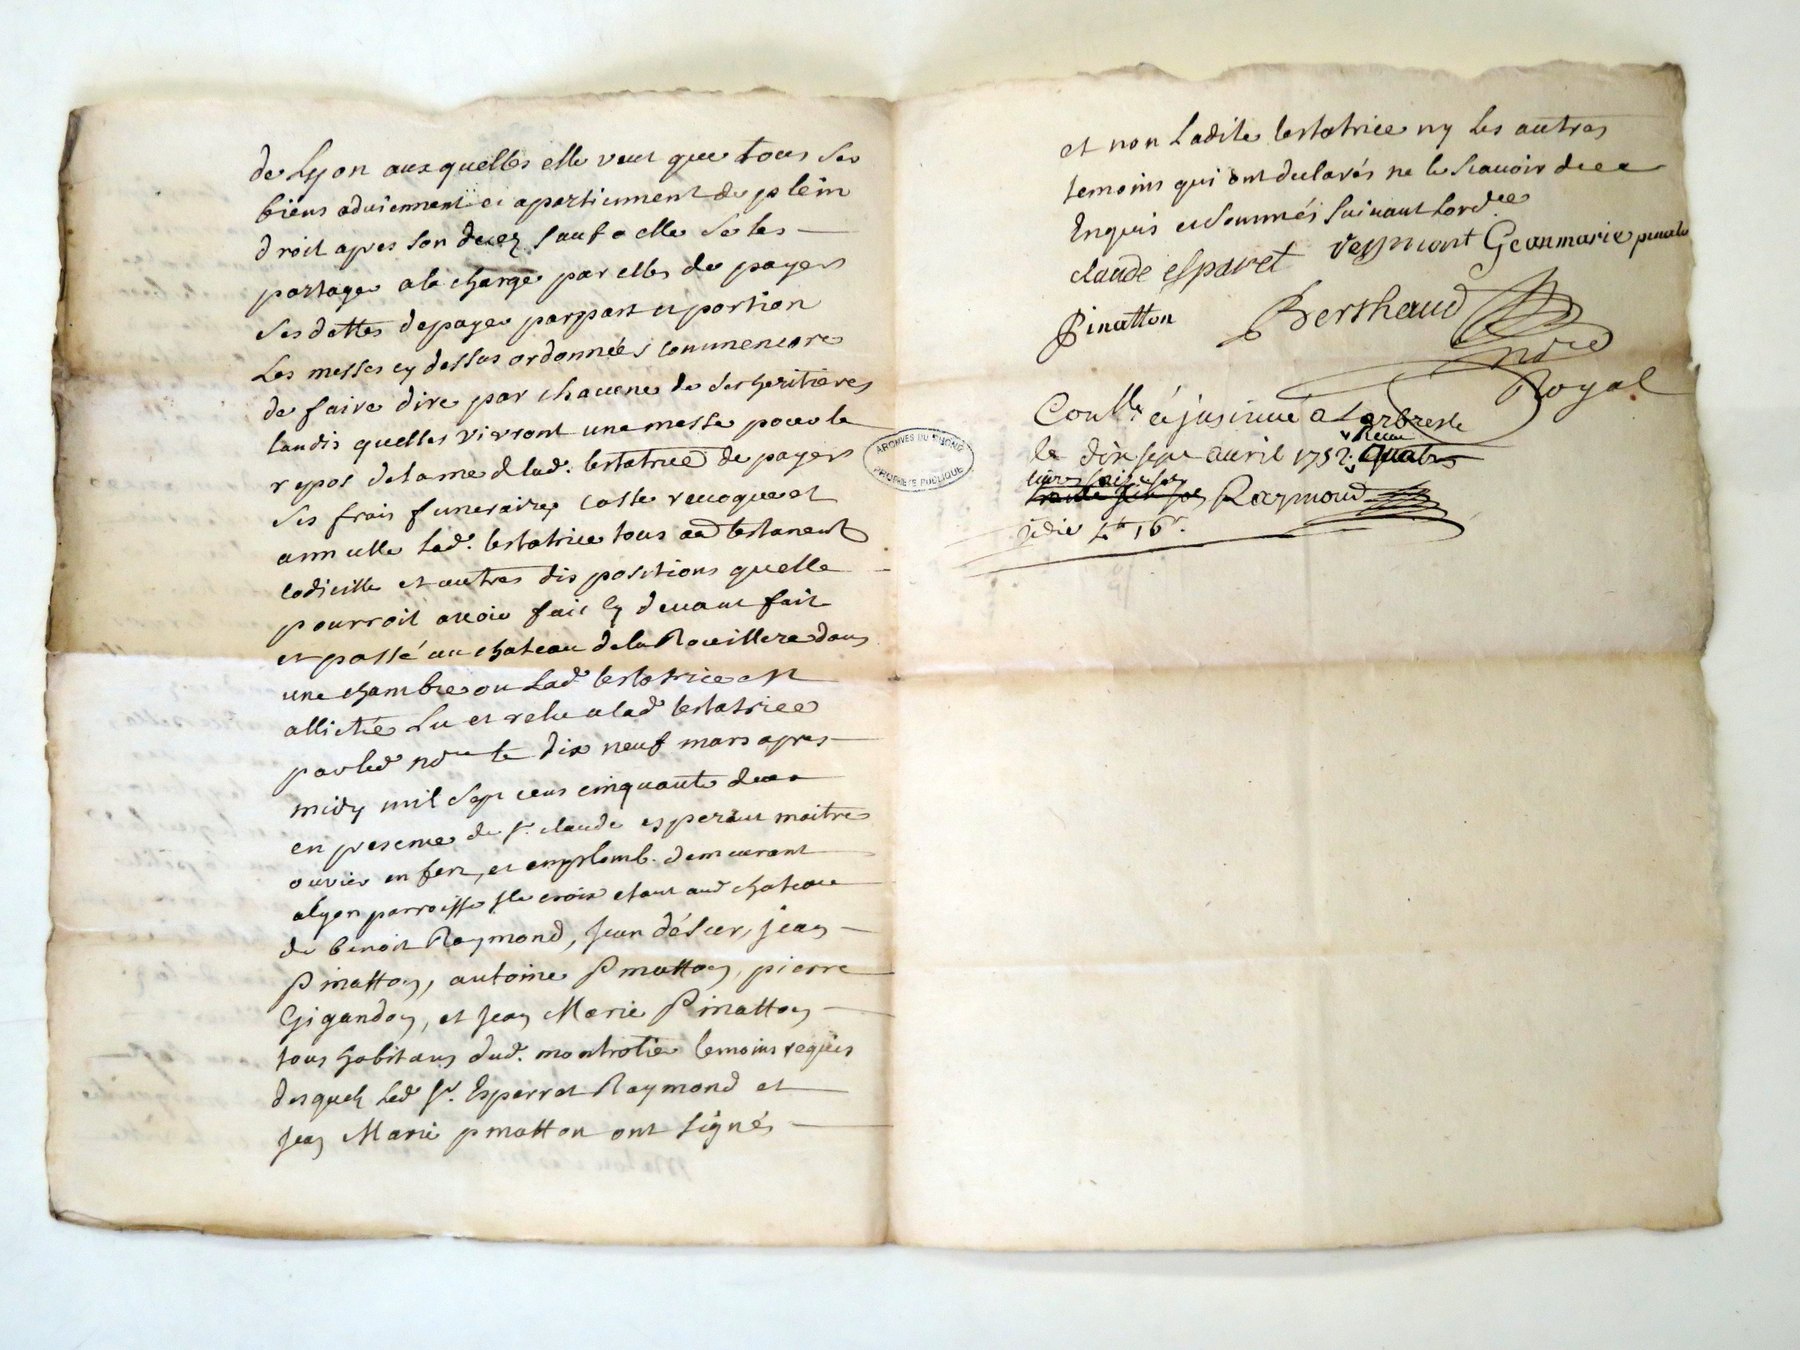 de Lyon auxquelles elle veut que tous ses
biens adviennent et apartiennent de plein
droit apres son decez sauf a elles se les
partager a la charge par elles de payer
ses dettes de payer par part et portion
Les messes cy dessus ordonnées
de faire dire par chacune de ses heritieres
tandis quelles vivront une messe pour le
repos de lame de lad. testatrice de payer
ses frais funeraires casse revoque et
annulle Lad. testatrice tous aud testament
codicille et autres dispositions quelle
pourroit avoir fait cy devant fait
et passé au chateau de la Rouillere dans
une chambre ou Lad. testatrice est
allictée Lu et relu a lad testatrice
par led nore le dix neuf mars apres
midy mil sept cens cinquante deux
en presence de sr. claude esperaut maitre
ouvrier en fert, et en plomb. demeurant
a lyon parroisse ste croix etant aud chateau
de benoit Raymond, jean désser, jean
Pinatton, antoine Pinatton, pierre
Gigandon, et jean Marie Pinatton
tous habitans dud. montrotier temoins requis
desquels Led sr. Esperrat Raymond et
jean Marie pinatton ont signés
et non Ladite testatrice ny les autres
temoins qui ont declarés ne le scavoir de ce
Enquis et sommés suivant lordce
claude esparet reymont Geanmarie
Pinatton Berthaud
nore
Royal
Conllé et jnsinué a Larbresle
ARCHIVES DU RHONE
PROPRIÉTÉ PUBLIQUE
le dix sept avril 1752. Recu quatre
livres seize sols
Raymond